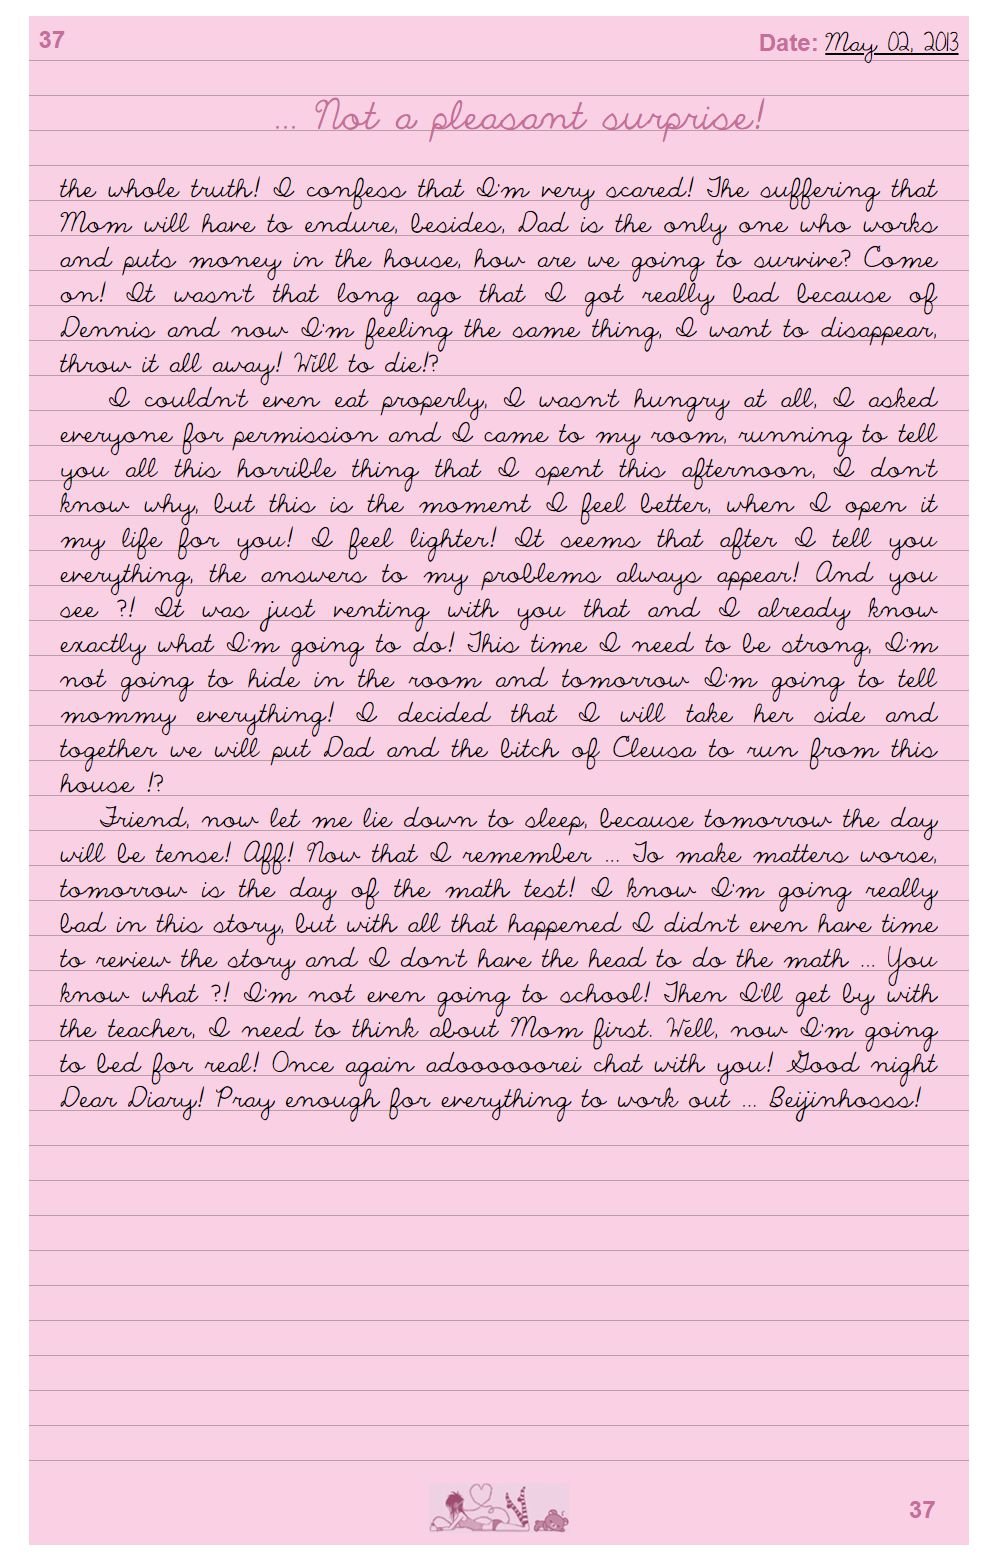 37
Date: May 02, 2013
... Not a pleasant surprise!
the whole truth! I confess that I'm very scared! The suffering that
Mom will have to endure, besides, Dad is the only one who works
and puts money in the house, how are we going to survive? Come
on! It wasn't that long ago that I got really bad because of
Dennis and now I'm feeling the same thing, I want to disappear,
throw it all away! Will to die!?
I couldn't even eat properly, I wasn't hungry at all, I asked
everyone for permission and I came to my room, running to tell
you all this horrible thing that I spent this afternoon, I don't
know why, but this is the moment I feel better, when I open it
my life for you! I feel lighter! It seems that after I tell you
everything, the answers to my problems always appear! And you
see ?! It was just venting with you that and I already know
exactly what I'm going to do! This time I need to be strong, I'm
not going to hide in the room and tomorrow I'm going to tell
mommy everything! I decided that I will take her side and
together we will put Dad and the bitch of Cleusa to run from this
house !?
Friend, now let me lie down to sleep, because tomorrow the day
will be tense! Aff! Now that I remember ... To make matters worse,
tomorrow is the day of the math test! I know I'm going really
bad in this story, but with all that happened I didn't even have time
to review the story and I don't have the head to do the math ... You
know what ?! I'm not even going to school! Then I'll get by with
the teacher, I need to think about Mom first. Well, now I'm going
to bed for real! Once again adooooooorei chat with you! Good night
Dear Diary! Pray enough for everything to work out ... Beijinhosss!
37